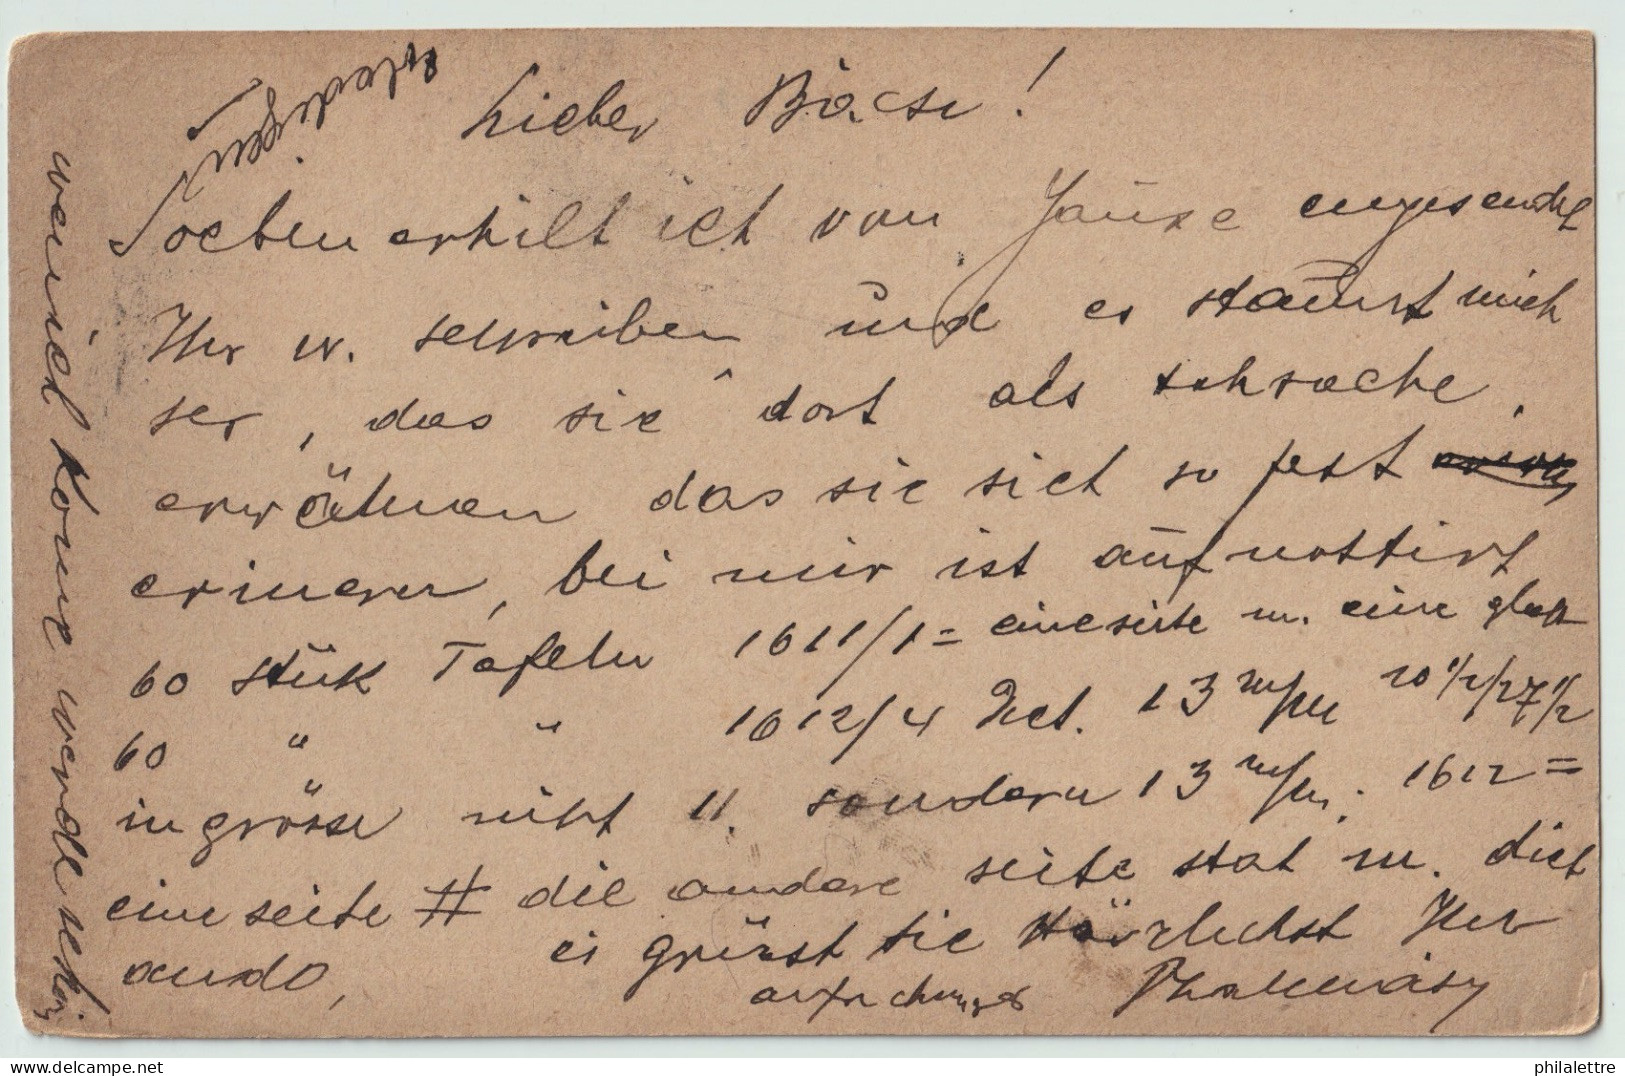 Lieber Bácsi!
Soeben erhilt ich von Hause eingesendet
Ihr w. schreiben und es staunt mich
ser, das sie dort als schrache,
erwähnen das sie sich so fest
erinern, bei mir ist aufnottirt
60 stük Tafeln 1611/1 = eine seite m. eine glatt
60 " " 1612/4 Dict. 13 m/m 20 1/2/27 1/2
in grösse nicht 11. sondern 13 m/m. 1612 =
eine seite # die andere seite stat m. dict
ando, es grüsst sie Härzlichst Ihr
wen ich kome werde schon
erledigen
philalettre